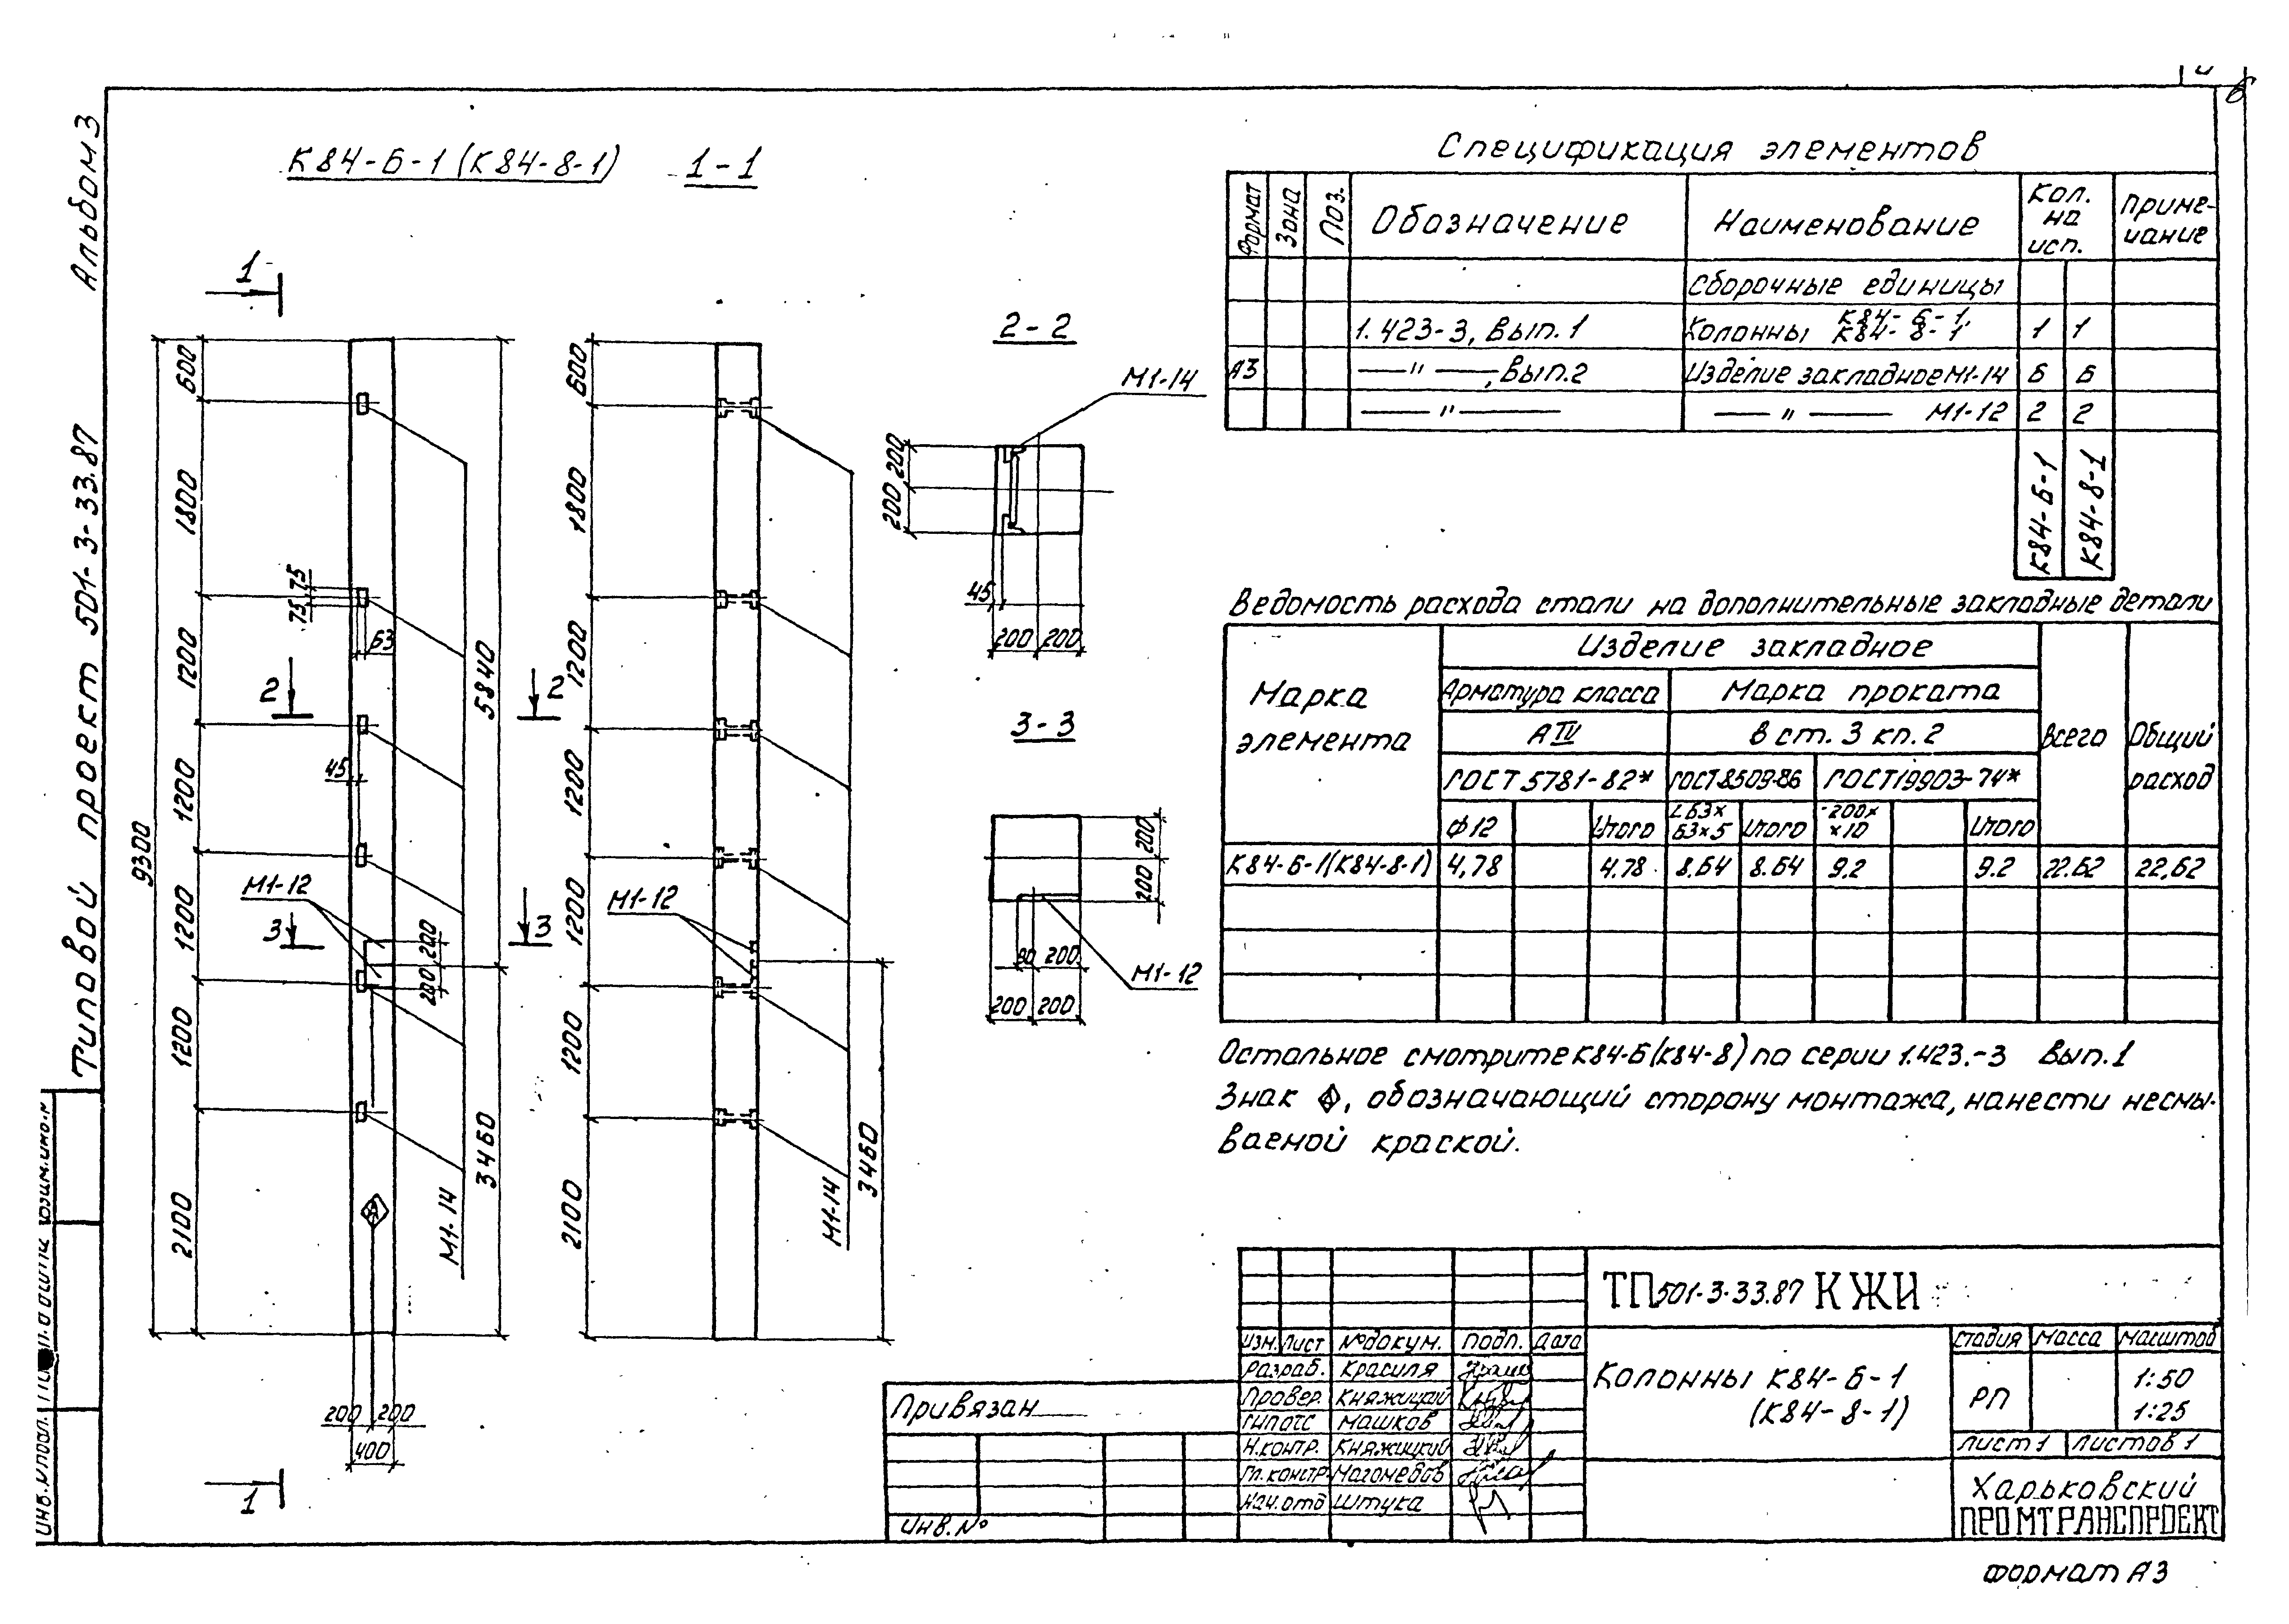 Альбом 3
Типовой проект 501-3-33.87
К84-6-1 (К84-8-1)
1-1
1
600
1800
1200
1200
1200
1200
2100
9300
75 75
63
45
2
3
М1-12
200 200
5840
3460
М1-14
200 200
400
1
600
1800
1200
1200
1200
1200
2100
2
3
М1-12
М1-14
3460
2-2
М1-14
200 200
45
200 200
3-3
200 200
80 200
М1-12
200 200
Спецификация элементов
Формат Зона Поз. Обозначение Наименование Кол. на исп. Приме-чание
Сборочные единицы
1.423-3, Вып. 1 Колонны К84-6-1, К84-8-1 1 1
А3 — " —, Вып. 2 Изделие закладное М1-14 6 6
— " — — " — М1-12 2 2
К84-6-1 К84-8-1
Ведомость расхода стали на дополнительные закладные детали
Марка элемента Изделие закладное Всего Общий расход
Арматура класса Марка проката
АIV В ст. 3 кп. 2
ГОСТ 5781-82* ГОСТ 8509-86 ГОСТ 19903-74*
Ф12 Итого L63×63×5 Итого -200××10 Итого
К84-6-1(К84-8-1) 4,78 4.78 8.64 8.64 9.2 9.2 22.62 22,62
Остальное смотрите К84-6 (К84-8) по серии 1.423.-3 Вып. 1
Знак А, обозначающий сторону монтажа, нанести несмы-
ваемой краской.
ТП 501-3-33.87 КЖИ
Изм. Лист № докум. Подп. Дата
Разраб. Красиля
Провер. Княжицкий
ГИП ОТС Машков
Н.контр. Княжицкий
Гл. констр. Магомедов
Нач. отд Штука
Колонны К84-6-1
(К84-8-1)
Стадия Масса Масштаб
РП 1:50
1:25
Лист 1 Листов 1
Харьковский
ПРОМТРАНСПРОЕКТ
Привязан
Инв. №
Инв. № подл.
Взам. инв. №
Формат А3